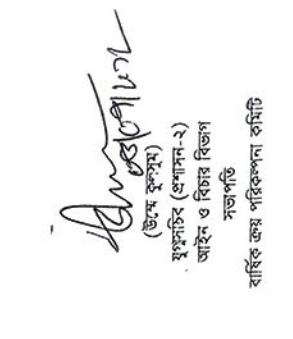 (উম্মে কুলসুম)
যুগ্মসচিব (প্রশাসন-২)
আইন ও বিচার বিভাগ
সভাপতি
বার্ষিক ক্রয় পরিকল্পনা কমিটি